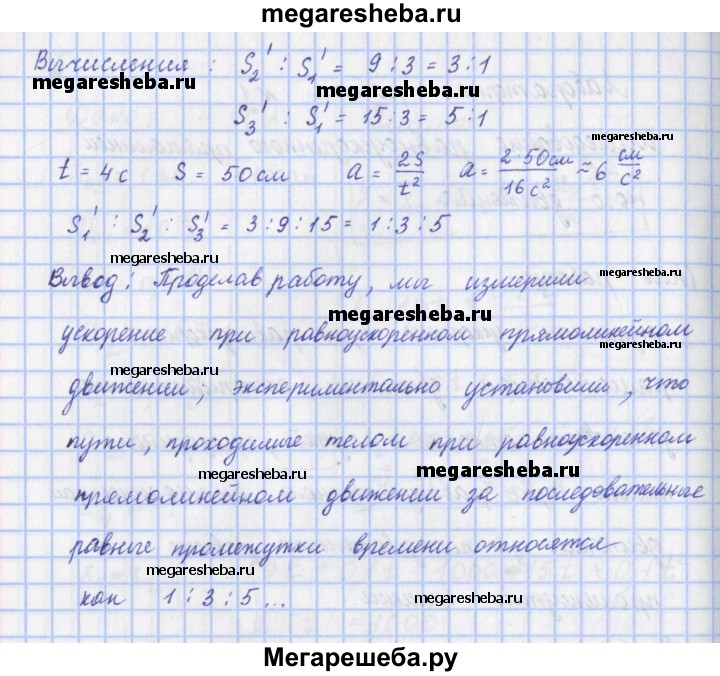 megaresheba.ru
Вычисления : S₂' : S₁' = 9 : 3 = 3 : 1
megaresheba.ru
megaresheba.ru
S₃' : S₁' = 15 : 3 = 5 : 1
t = 4 с S = 50 см a = 2S/t² a = 2·50см/16 с² ≈ 6 см/с²
S₁' : S₂' : S₃' = 3 : 9 : 15 = 1 : 3 : 5
megaresheba.ru
Вывод : Проделав работу, мы измерили
megaresheba.ru
megaresheba.ru
ускорение при равноускоренном прямолинейном
megaresheba.ru
megaresheba.ru
движении, экспериментально установили, что
пути, проходимые телом при равноускоренном
megaresheba.ru
megaresheba.ru
прямолинейном движении за последовательные
равные промежутки времени относятся
megaresheba.ru
как 1 : 3 : 5 ...
megaresheba.ru
Мегарешеба.ру